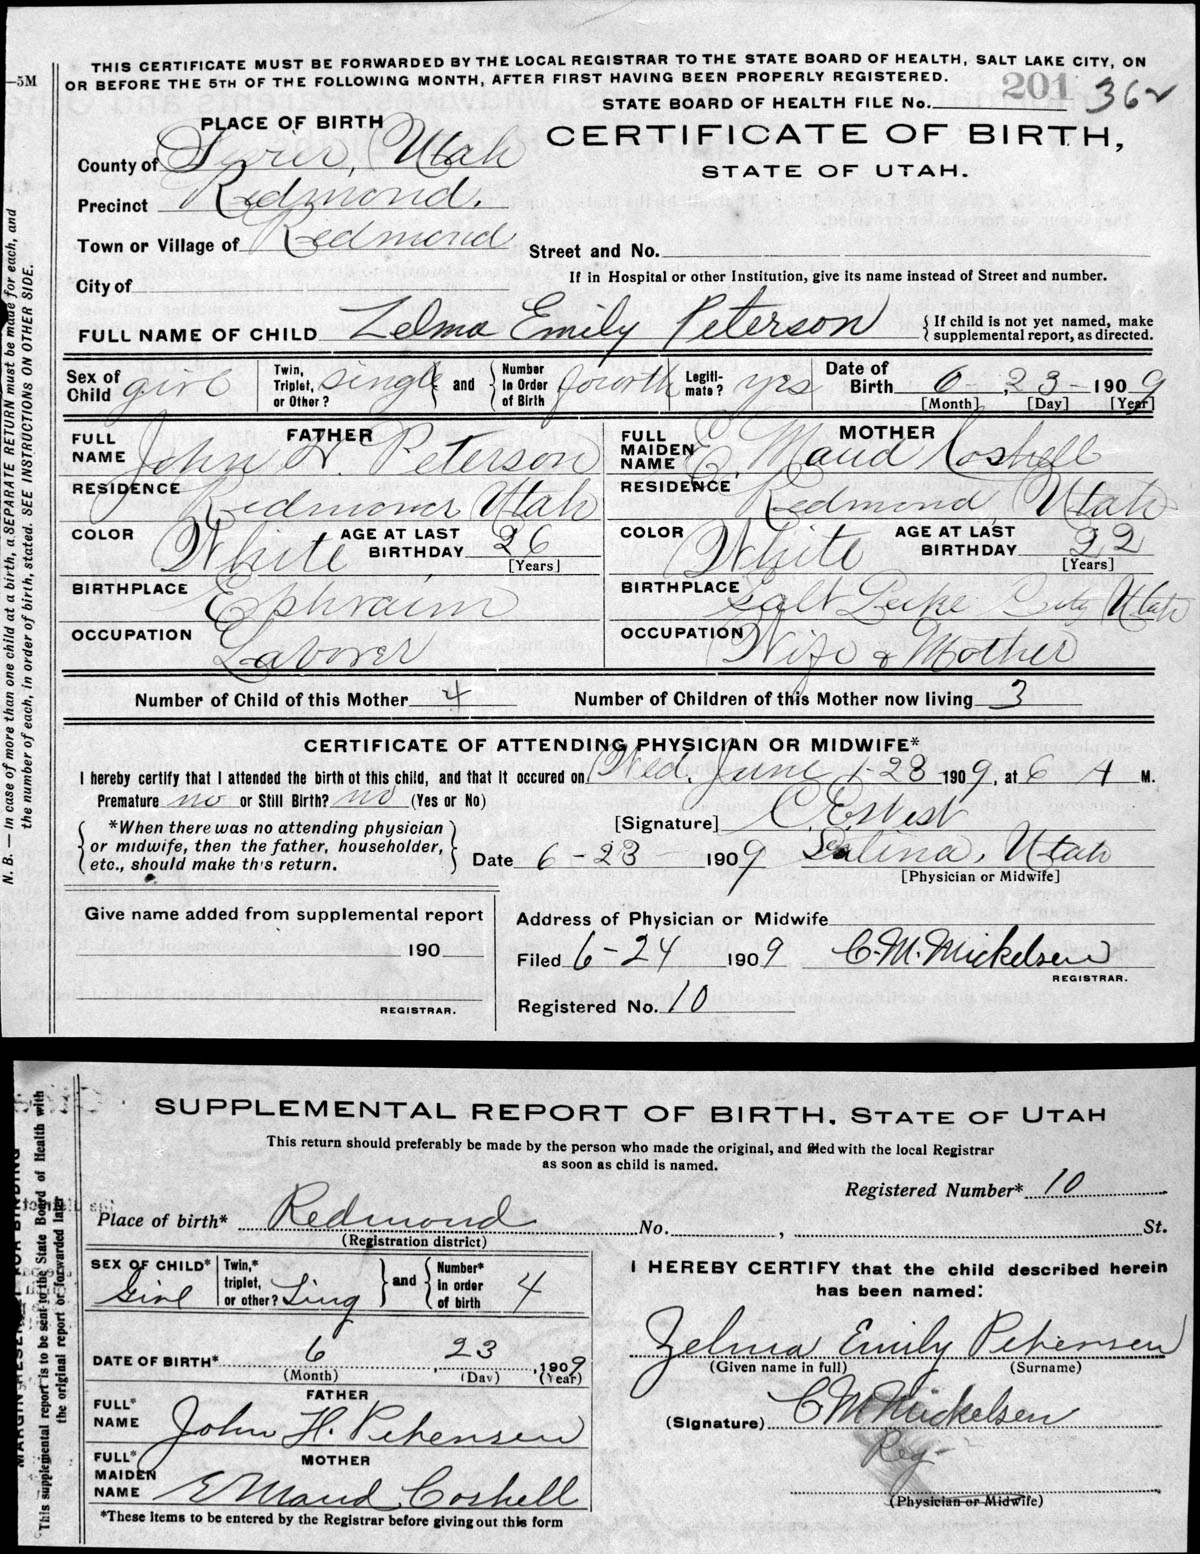 THIS CERTIFICATE MUST BE FORWARDED BY THE LOCAL REGISTRAR TO THE STATE BOARD OF HEALTH, SALT LAKE CITY, ON
OR BEFORE THE 5TH OF THE FOLLOWING MONTH, AFTER FIRST HAVING BEEN PROPERLY REGISTERED.
—5M
STATE BOARD OF HEALTH FILE No. 201 362
PLACE OF BIRTH
CERTIFICATE OF BIRTH,
STATE OF UTAH.
County of Sevier, Utah
Precinct Redmond.
Town or Village of Redmond
Street and No.
City of
If in Hospital or other Institution, give its name instead of Street and number.
FULL NAME OF CHILD Zelma Emily Peterson
{If child is not yet named, make
supplemental report, as directed.
Sex of Child girl Twin, Triplet, or Other? single and Number In Order of Birth fourth Legiti-mate? yes Date of Birth 6 - 23 - 1909
[Month] [Day] [Year]
FATHER
FULL NAME John H. Peterson
RESIDENCE Redmond Utah
COLOR White AGE AT LAST BIRTHDAY 26
[Years]
BIRTHPLACE Ephraim
OCCUPATION Laborer
MOTHER
FULL MAIDEN NAME E. Maud Coshell
RESIDENCE Redmond, Utah
COLOR White AGE AT LAST BIRTHDAY 22
[Years]
BIRTHPLACE Salt Lake City Utah
OCCUPATION Wife & Mother
Number of Child of this Mother 4
Number of Children of this Mother now living 3
CERTIFICATE OF ATTENDING PHYSICIAN OR MIDWIFE*
I hereby certify that I attended the birth of this child, and that it occured on Wed, June 23 1909, at 6 A M.
Premature no or Still Birth? no (Yes or No)
{*When there was no attending physician
or midwife, then the father, householder,
etc., should make this return.}
[Signature] C. E. West
Date 6-23 1909 Salina, Utah
[Physician or Midwife]
Give name added from supplemental report
190
REGISTRAR.
Address of Physician or Midwife
Filed 6-24 1909 C. M. Mickelsen
REGISTRAR.
Registered No. 10
N. B. — In case of more than one child at a birth, a SEPARATE RETURN must be made for each, and
the number of each, in order of birth, stated. SEE INSTRUCTIONS ON OTHER SIDE.
SUPPLEMENTAL REPORT OF BIRTH, STATE OF UTAH
This return should preferably be made by the person who made the original, and filed with the local Registrar
as soon as child is named.
Registered Number* 10
Place of birth* Redmond No. , St.
(Registration district)
SEX OF CHILD* Girl Twin,* triplet, or other? Sing and Number* in order of birth 4
DATE OF BIRTH* 6 , 23 , 1909
(Month) (Day) (Year)
FATHER
FULL* NAME John H. Petersen
MOTHER
FULL* MAIDEN NAME E Maud Coshell
*These items to be entered by the Registrar before giving out this form
I HEREBY CERTIFY that the child described herein
has been named:
Zelma Emily Petersen
(Given name in full) (Surname)
(Signature) C M Mickelsen
Reg-
(Physician or Midwife)
MARGIN RESERVED FOR BINDING
This supplemental report is to be sent to the State Board of Health with
the original report or forwarded later